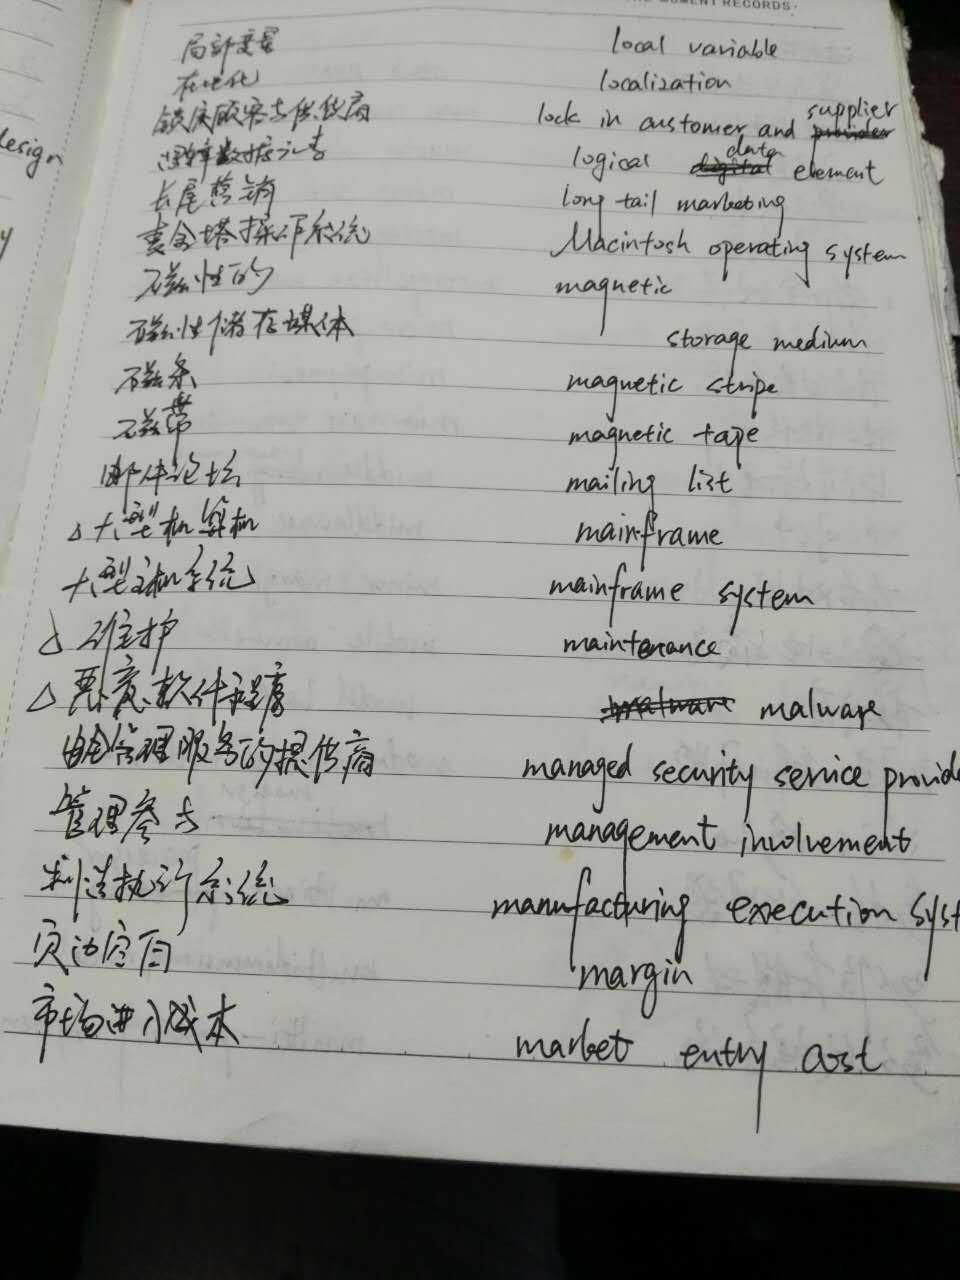 THE MOMENT RECORDS·
局部变量 local variable
本地化 localization
锁定顾客与供货商 lock in customer and supplier
逻辑数据元素 logical data element
长尾营销 long tail marketing
麦金塔操作系统 Macintosh operating system
磁性的 magnetic
磁性储存媒体 storage medium
磁条 magnetic stripe
磁带 magnetic tape
邮件论坛 mailing list
△ 大型机算机 mainframe
大型主机系统 mainframe system
△ 维护 maintenance
△ 恶意软件程序 malware
安全管理服务的提供商 managed security service provide
管理参与 management involvement
制造执行系统 manufacturing execution syst
页边空白 margin
市场进入成本 market entry cost
design
y